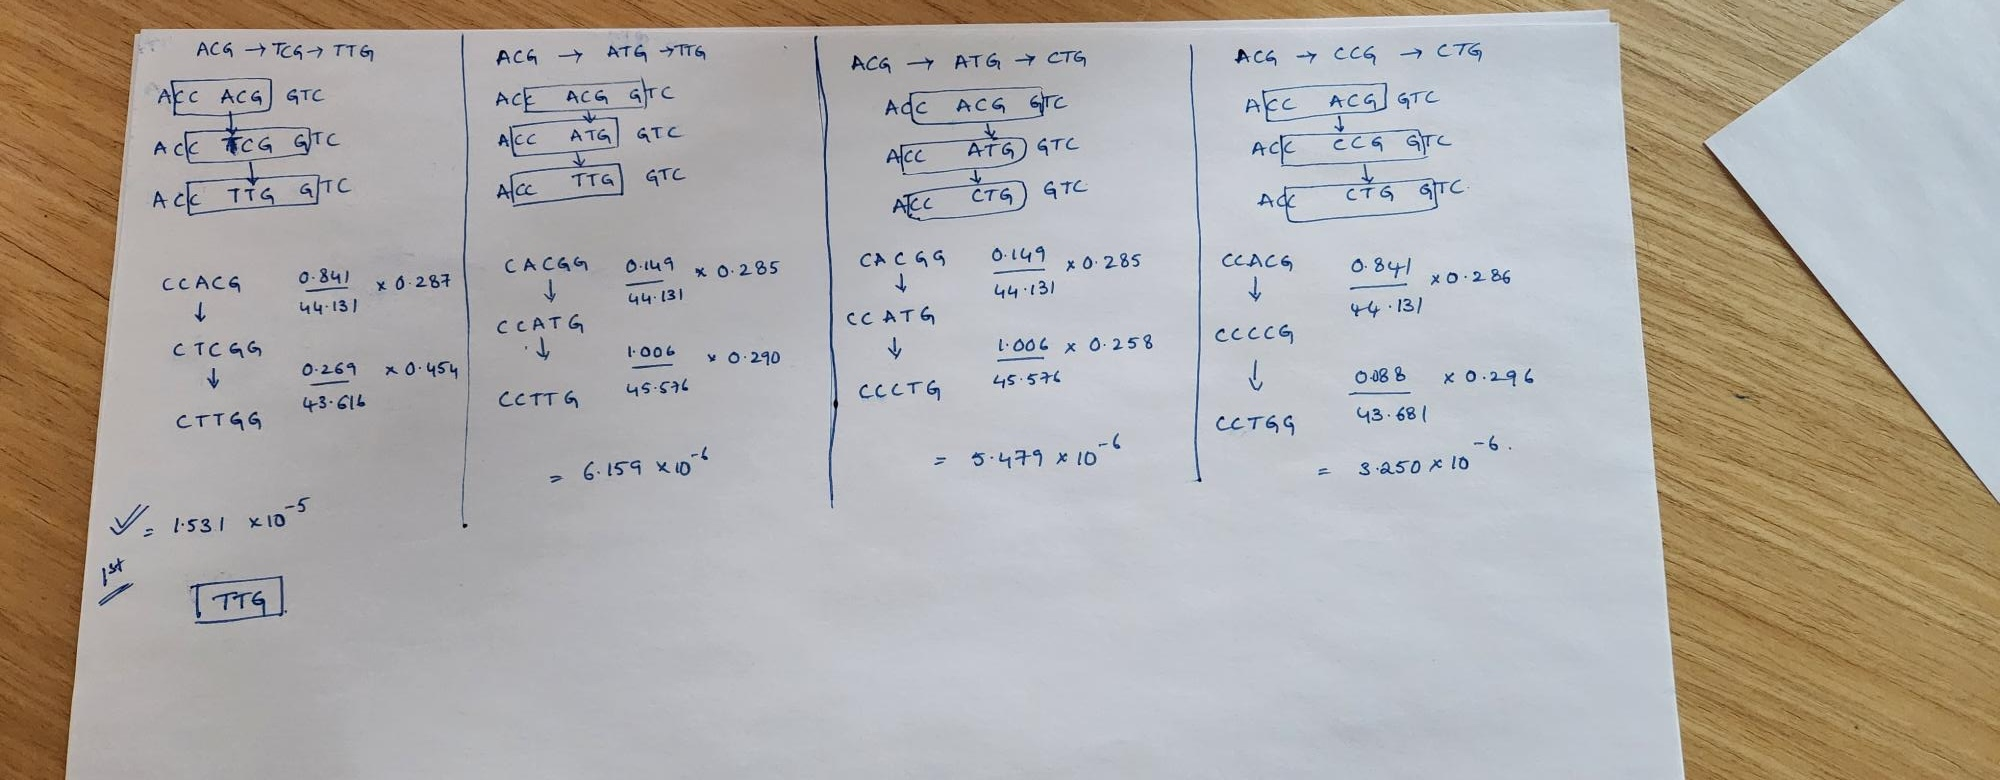 ACG → TCG → TTG
ACC ACG GTC
ACC TCG GTC
ACC TTG GTC
CCACG 0.841 / 44.131 × 0.287
↓
CTCGG 0.269 / 43.616 × 0.454
↓
CTTGG
= 1.531 × 10⁻⁵
1st
TTG
ACG → ATG → TTG
ACC ACG GTC
ACC ATG GTC
ACC TTG GTC
CACGG 0.149 / 44.131 × 0.285
↓
CCATG 1.006 / 45.576 × 0.290
↓
CCTTG
= 6.159 × 10⁻⁶
ACG → ATG → CTG
ACC ACG GTC
ACC ATG GTC
ACC CTG GTC
CACGG 0.149 / 44.131 × 0.285
↓
CCATG 1.006 / 45.576 × 0.258
↓
CCCTG
= 5.479 × 10⁻⁶
ACG → CCG → CTG
ACC ACG GTC
ACC CCG GTC
ACC CTG GTC
CCACG 0.841 / 44.131 × 0.286
↓
CCCCG 0.088 / 43.681 × 0.296
↓
CCTGG
= 3.250 × 10⁻⁶.